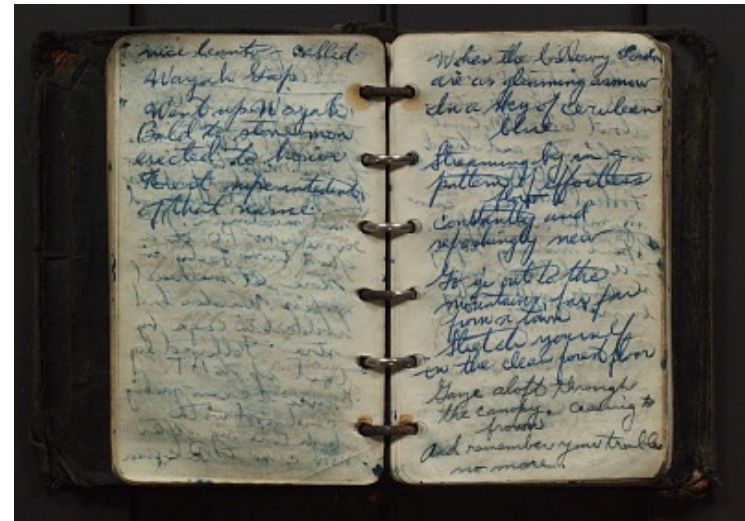 nice beauty - called
Wayah Gap.
Went up Wayah
Bald to stone mon
erected to honor
forest superintendent
of that name.
When the billowy
are as gleaming as snow
In a sky of cerulean
blue
Streaming by in a
pattern of effortless
constantly and
refreshingly new
Go ye out to the
mountains, far far
from a town
Stretch yourself
on the clean forest floor
Gaze aloft through
the canopy, ceasing to
frown
And remember your troubles
no more.